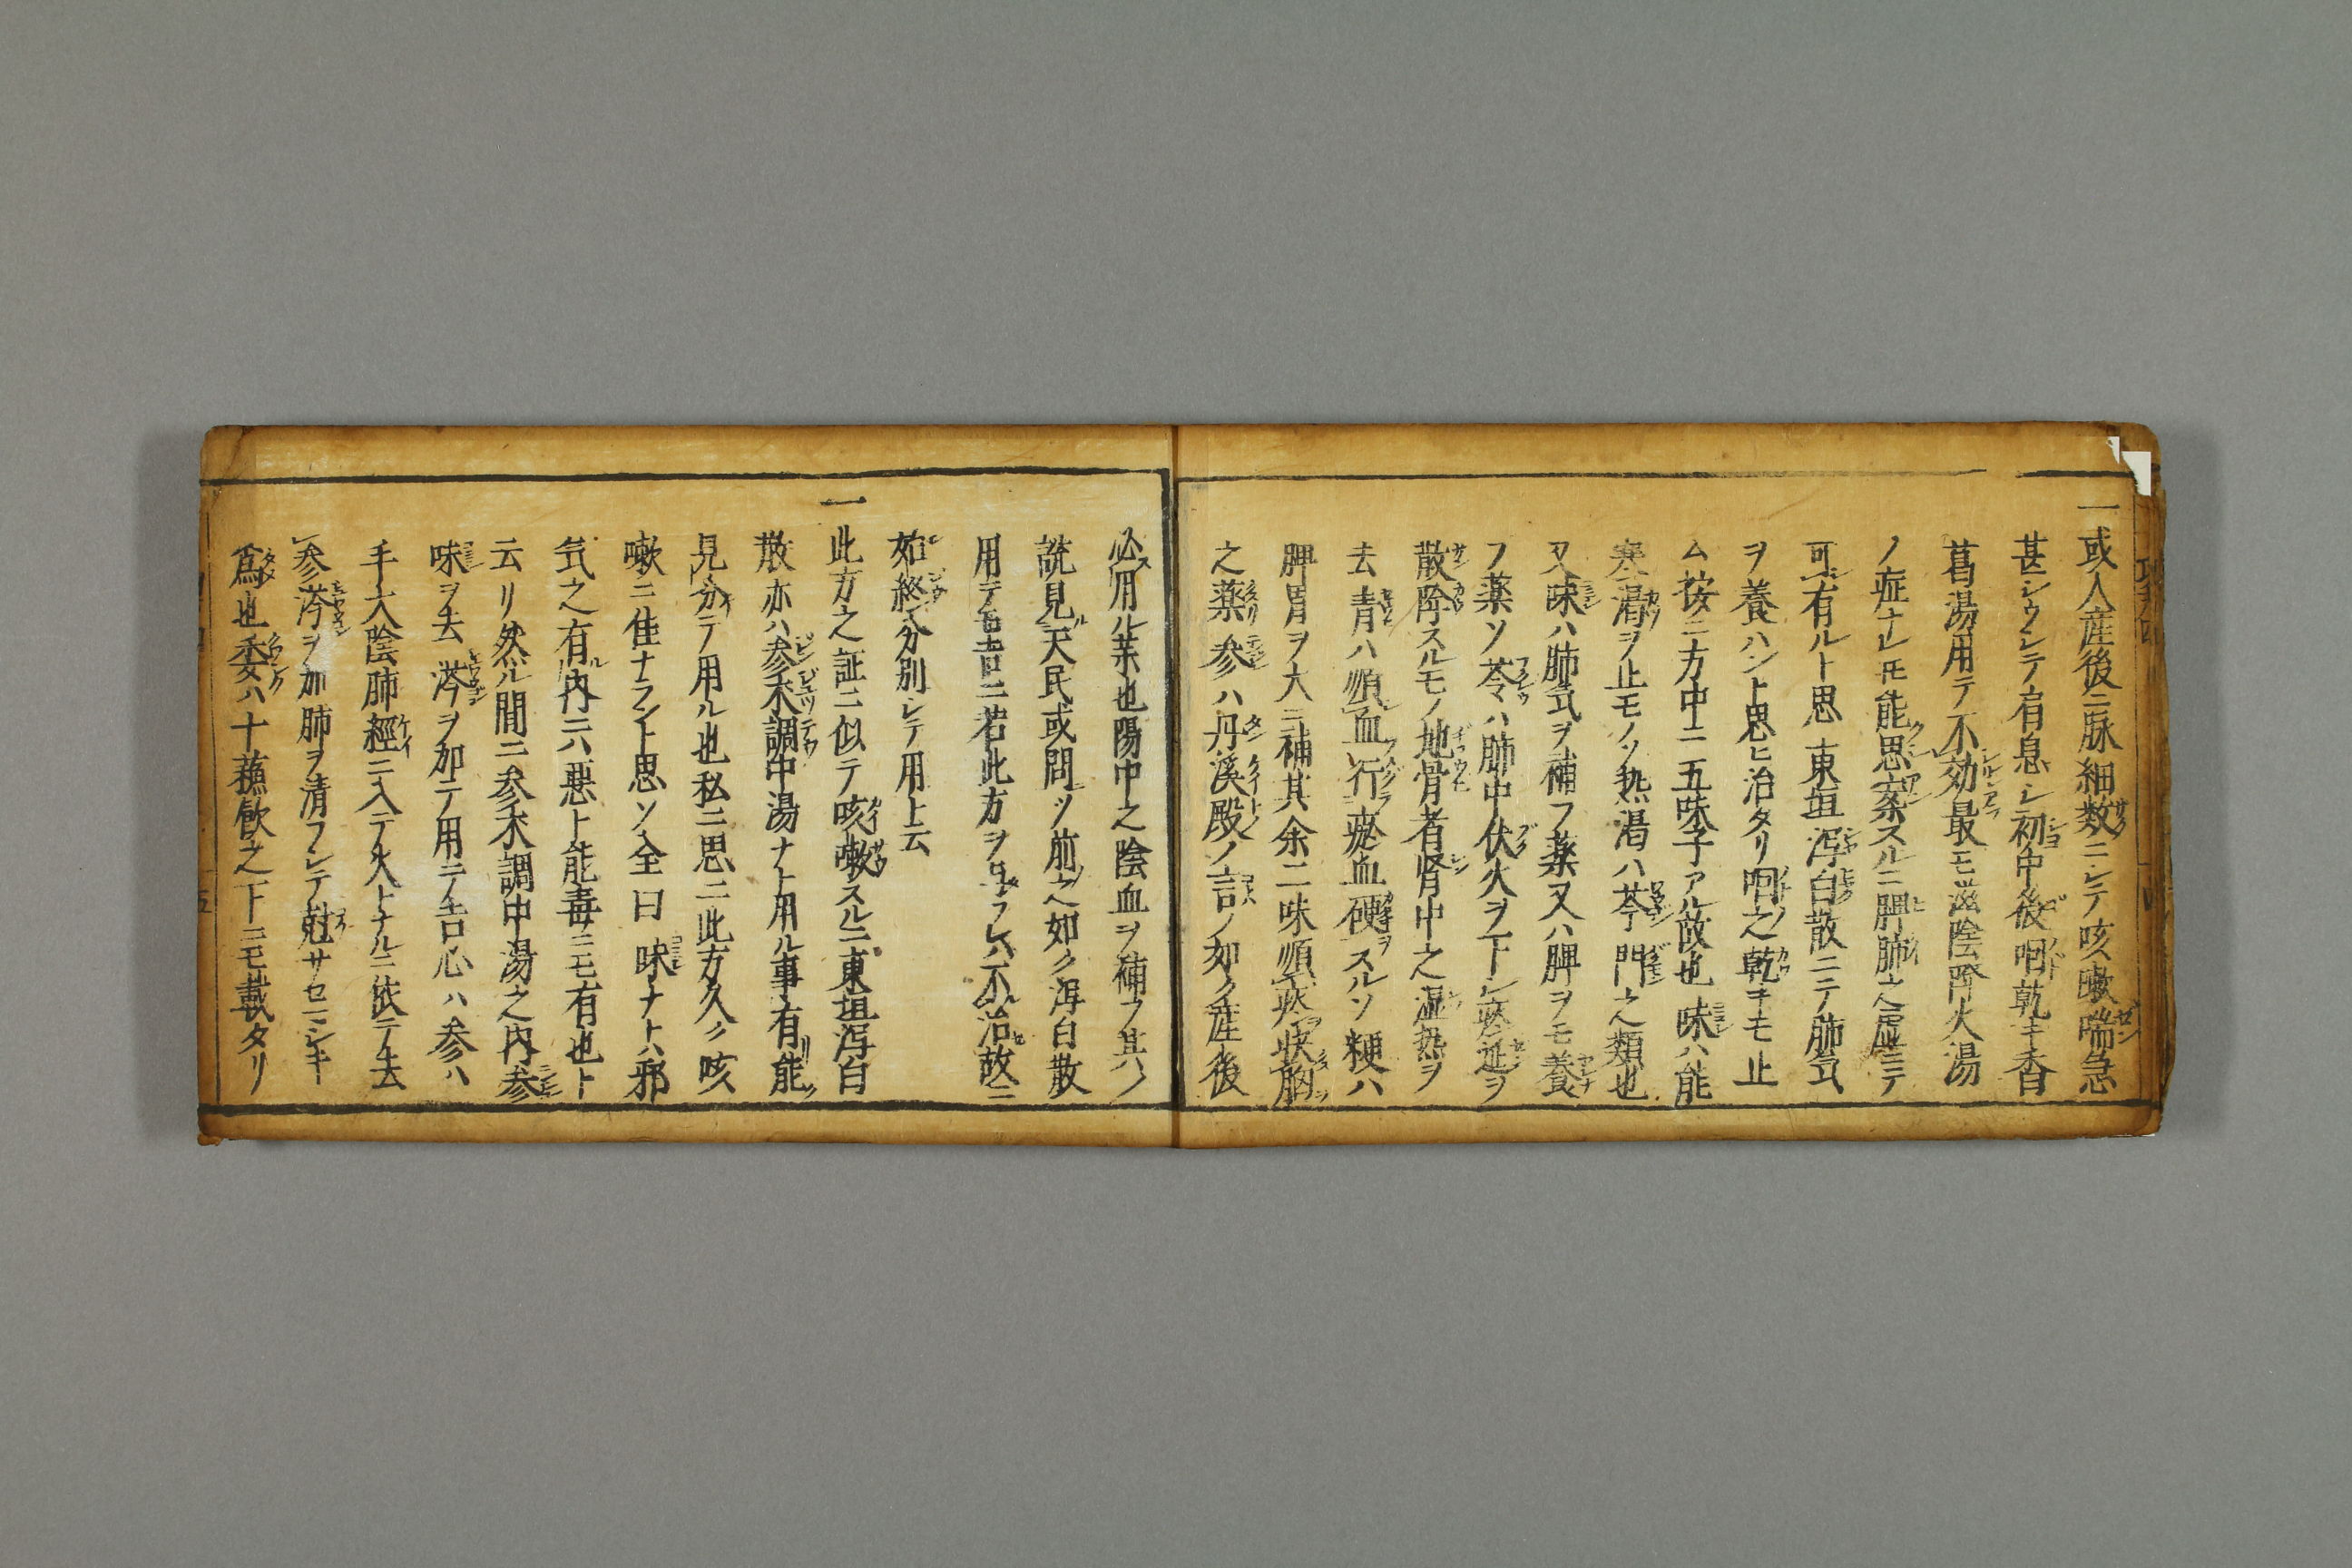 一或人産後ニ脉細数ニシテ咳嗽喘急
甚シウシテ有息シ初中後咽乾キ香
葛湯用テ不効最モ滋陰降火湯
ノ症ナレモ能思案スルニ脾肺之虚ニテ
可有ルト思東垣瀉白散ニテ肺気
ヲ養ハント思ヒ治タリ咽之乾ヲモ止
ム按ニ方中ニ五味子アル故也味ハ能
寒渇ヲ止モノソ熱渇ハ芩門之類也
又味ハ肺気ヲ補フ薬又ハ脾ヲモ養
フ薬ソ苓ハ肺中伏火ヲ下シ痰涎ヲ
散除スルモノ地骨者腎中之湿熱ヲ
去青ハ順血行瘀血硬ヲスルソ粳ハ
脾胃ヲ大ニ補其余二味順気痰快胸
之薬参ハ丹溪殿ノ言ノ如ク産後
必用ル薬也陽中之陰血ヲ補フ其ノ
説見天民或問ソ前之如ク瀉白散
用テ若此方ヲフレハ不治故ニ
始終分別シテ用上云
一此方之証ニ似テ咳嗽スルニ東垣瀉白
散亦ハ参朮調中湯ナト用ル事有能
見分テ用ル也私ニ思ニ此方久ク咳
嗽ニ佳ナラント思ソ全曰味ナトハ邪
気之有内ニハ悪ト能毒ニモ有也ト
云リ然ル間ニ参朮調中湯之内参
味ヲ去芩ヲ加テ用ニテ吉心ハ参ハ
手大陰肺經ニ入テ火トナルニ依テ去
参芩ヲ加肺ヲ清フシテ尅サセマシキ
為也委ハ十蘓飲之下ニモ載タリ